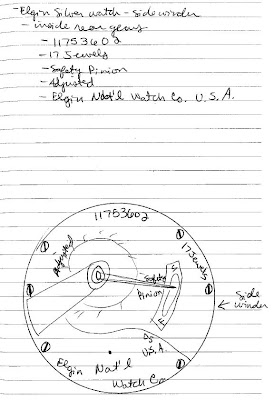 -Elgin Silver watch - sidewinder
- inside near gears
- 11753602
- 17 Jewels
- Safety Pinion
- Adjusted
- Elgin Nat'l Watch Co. U.S.A.
11753602
Adjusted
17 Jewels
Safety
Pinion
S
F
Side
winder
U.S.A.
Elgin Nat'l
Watch Co